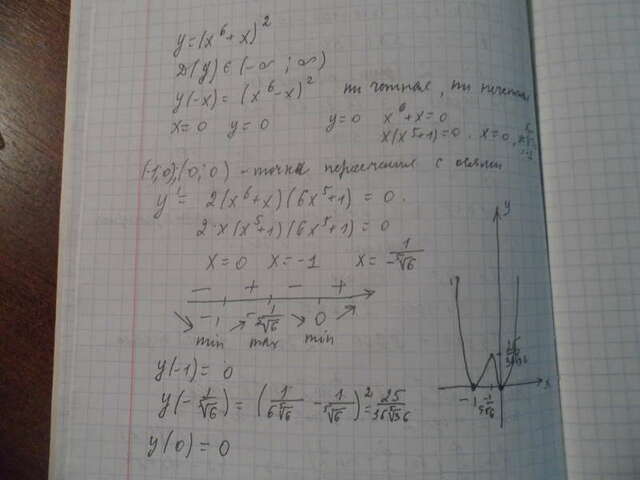 y=(x⁶+x)²
D(y)∈(-∞;∞)
y(-x)=(x⁶-x)² ни четная, ни нечетная
x=0 y=0 y=0 x⁶+x=0
x(x⁵+1)=0. x=0, x=-1
(-1;0);(0;0) - точки пересечения с осями
y' = 2(x⁶+x)(6x⁵+1)=0.
2·x(x⁵+1)(6x⁵+1)=0
x=0 x=-1 x=-1/⁵√6
- + - +
-1 -1/⁵√6 0
min max min
y(-1)=0
y(-1/⁵√6)=(1/6⁵√6 - 1/⁵√6)²=25/36⁵√36
y(0)=0
y
25/36⁵√36
x
-1 -1/⁵√6